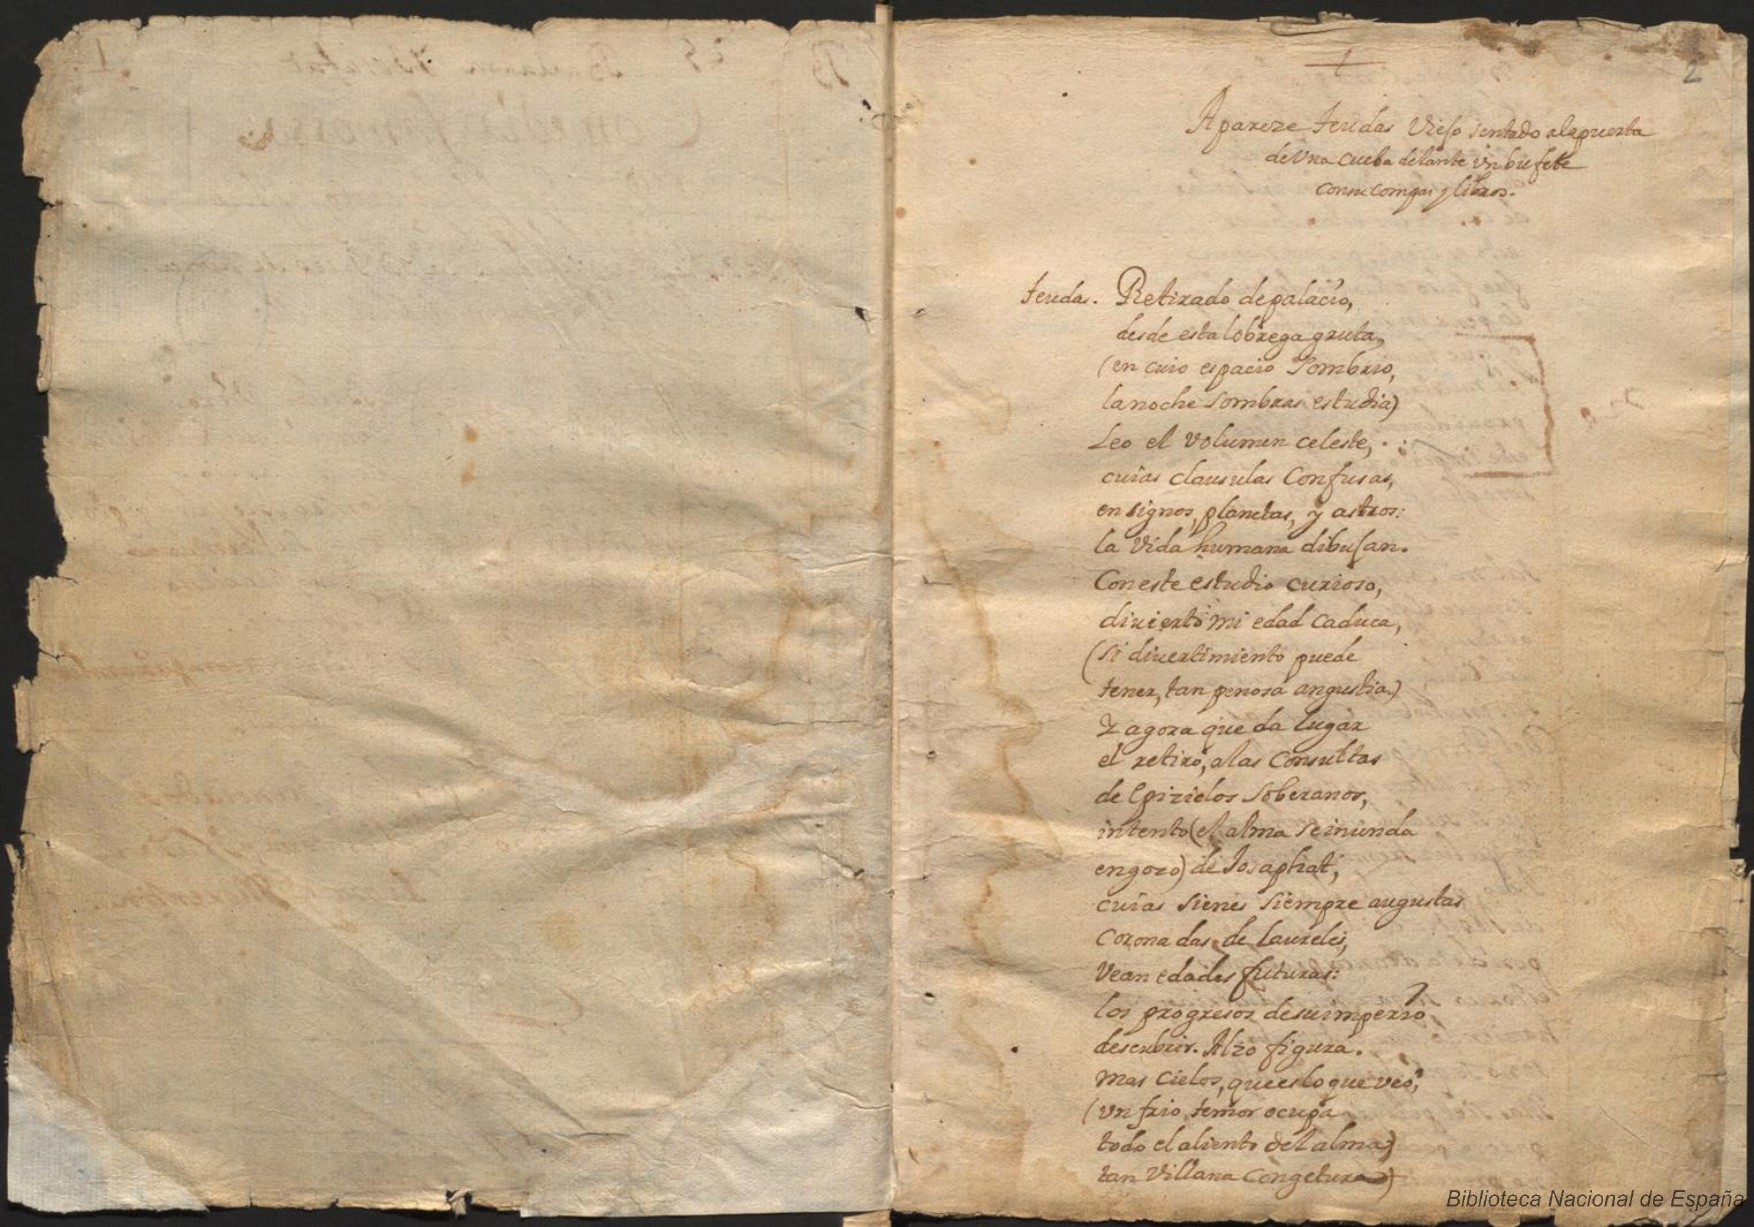 2
Apareze teudas Viejo sentado a la puerta
de Vna cueba delante Vn bufete
con su compas y libros.
teudas. Retirado de palacio,
desde esta lobrega gruta,
(en cuio espacio sombrio,
la noche sombras estudia)
Leo el volumen celeste,
cuias clausulas Confusas,
en signos, planetas, y astros:
la Vida humana dibujan.
Con este estudio curioso,
divierto mi edad caduca,
(si divertimiento puede
tener, tan penosa angustia)
Y agora que da lugar
el retiro, a las Consultas
de Epiziclos Soberanos,
intento (el alma se inunda
en gozo) de Josaphat,
cuias sienes siempre augustas
Coronadas de laureles,
Vean edades futuras:
los progresos de su imperio
descubrir. Alzo figura.
mas Cielos, que es lo que veo,
(vn frio temor ocupa
todo el aliento del alma)
tan Villana Congetura)
Biblioteca Nacional de España